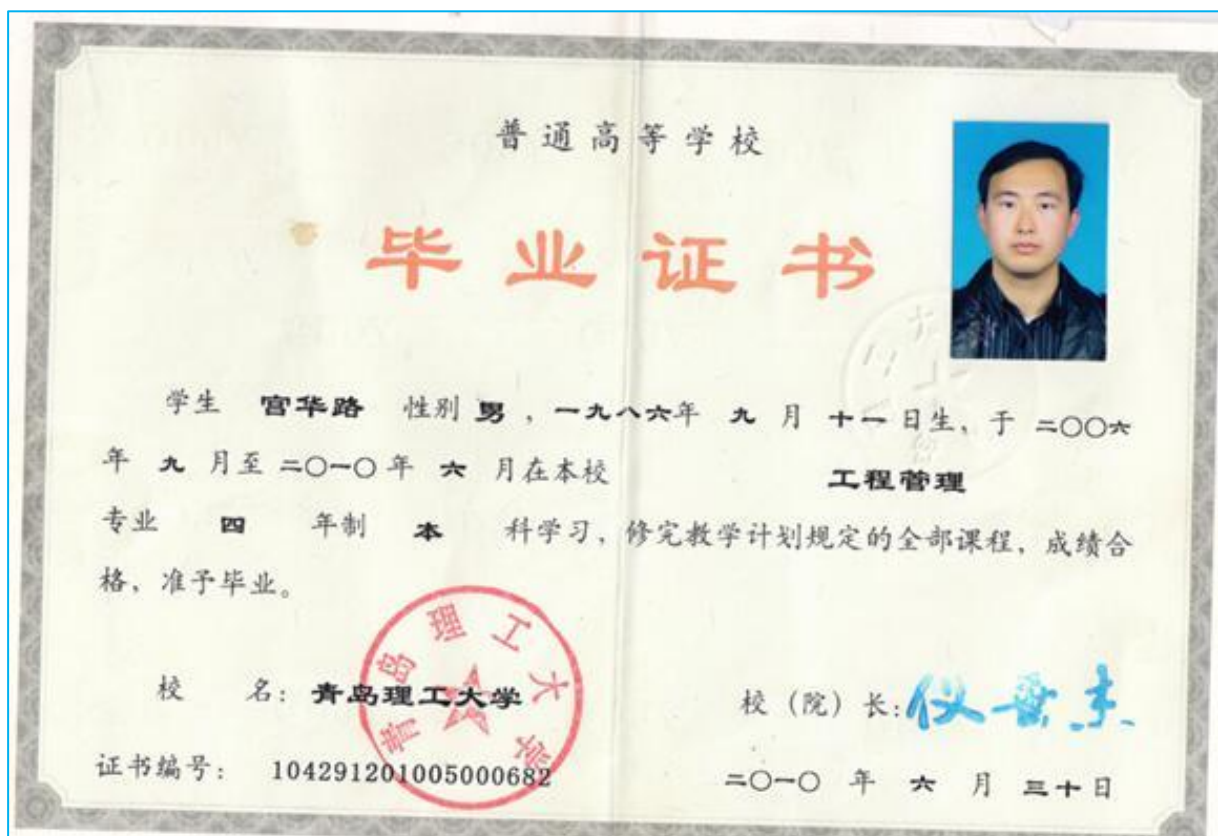 普通高等学校
毕业证书
学生 宫华路 性别 男，一九八六年 九 月 十一 日生，于 二〇〇六
年 九 月至 二〇一〇 年 六 月在本校 工程管理
专业 四 年制 本 科学习，修完教学计划规定的全部课程，成绩合
格，准予毕业。
青岛理工大学
校 名：青岛理工大学
校（院）长：
证书编号： 104291201005000682
二〇一〇 年 六 月 三十日